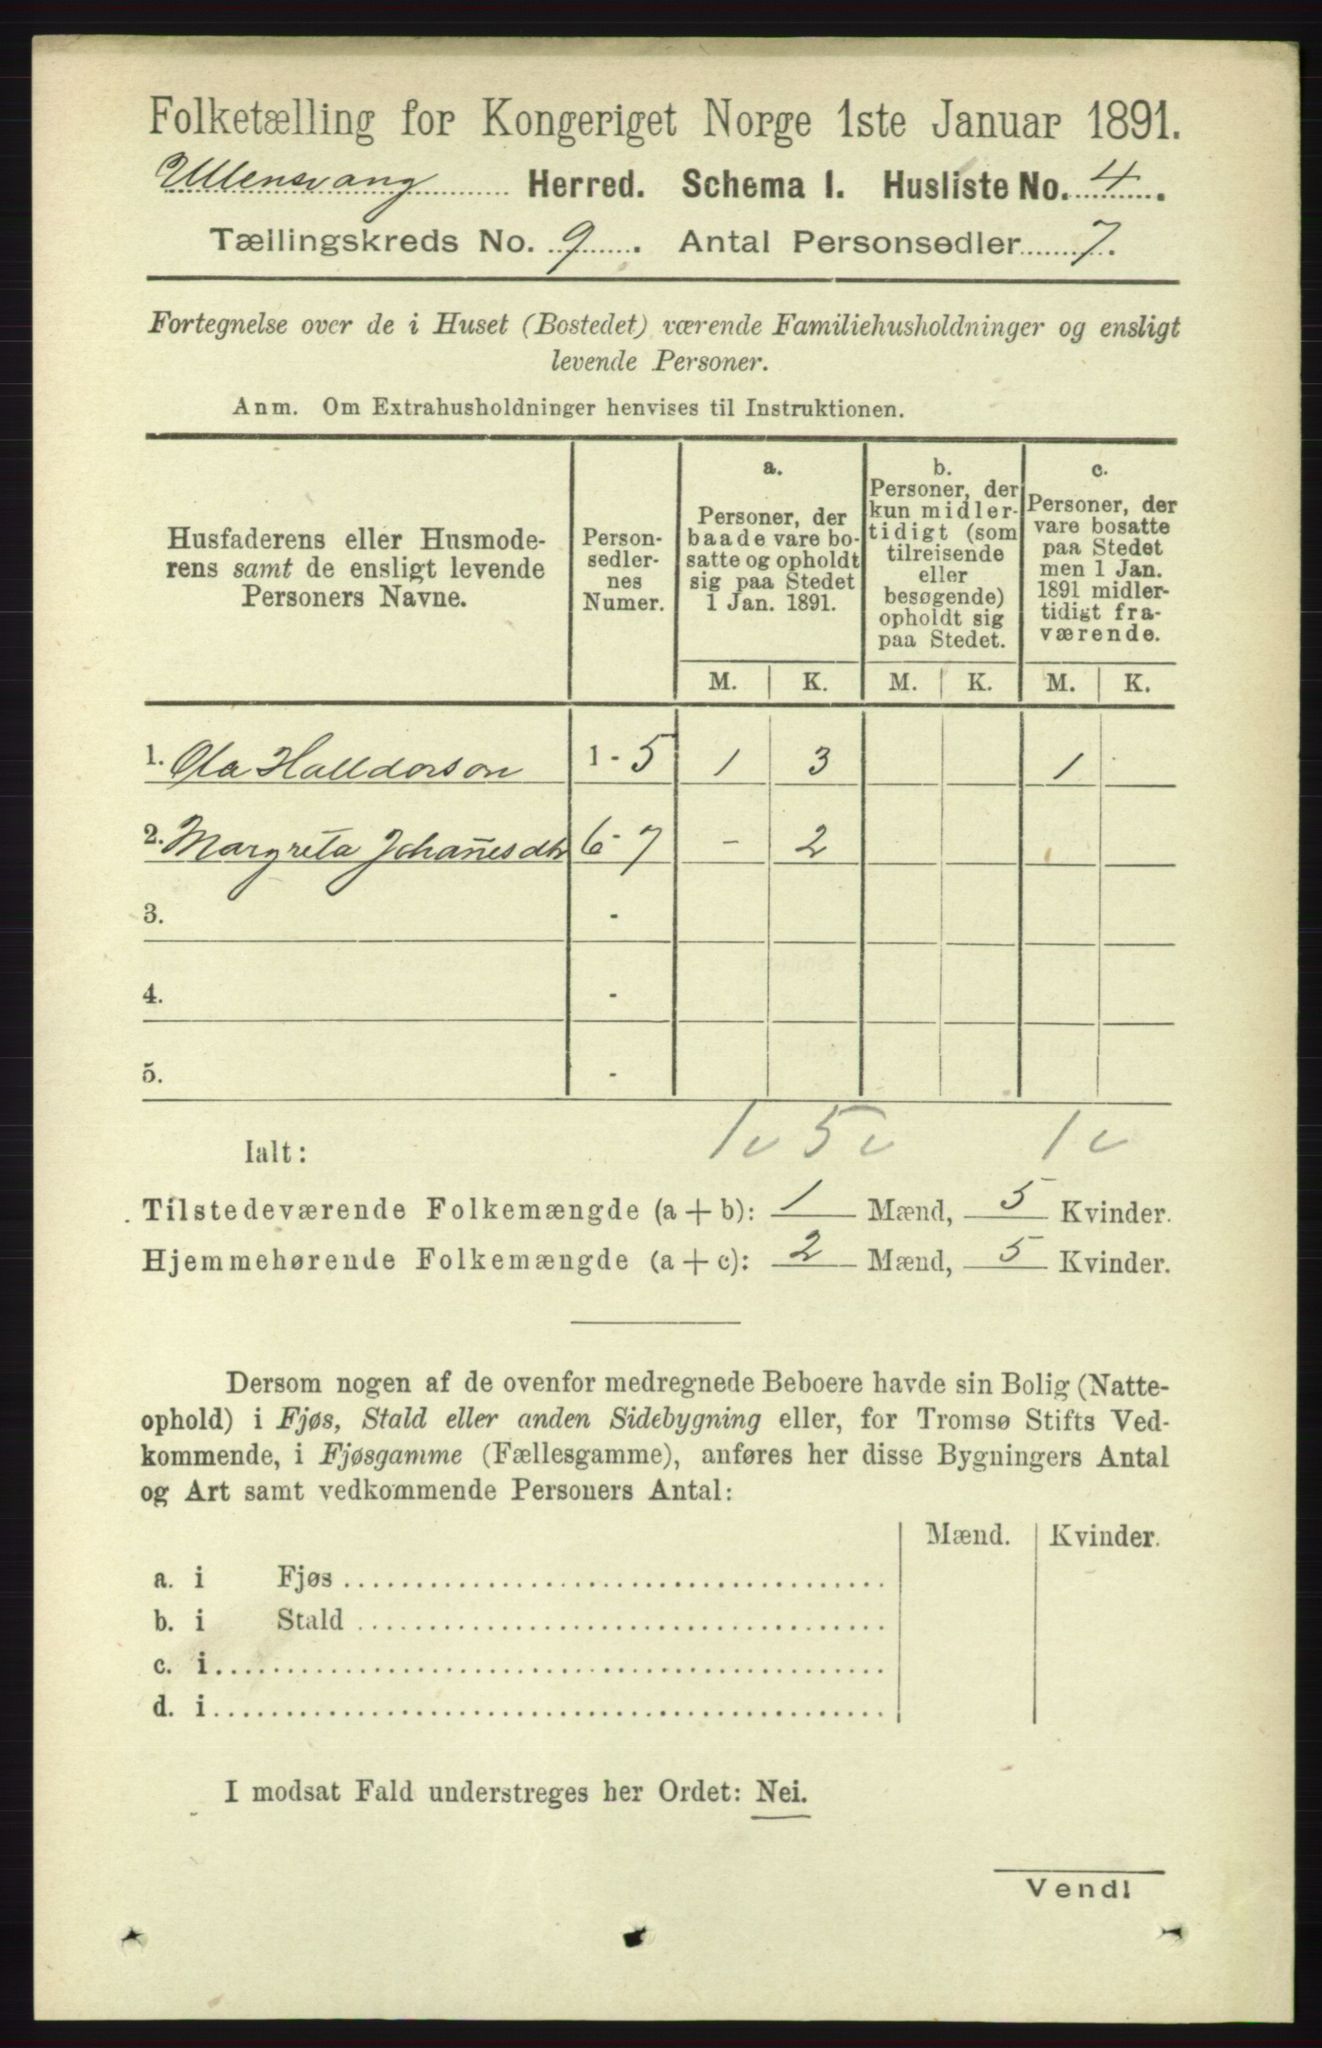 Folketælling for Kongeriget Norge 1ste Januar 1891.
Ullensvang Herred. Schema I. Husliste No. 4.
Tællingskreds No. 9. Antal Personsedler 7.
Fortegnelse over de i Huset (Bostedet) værende Familiehusholdninger og ensligt
levende Personer.
Anm. Om Extrahusholdninger henvises til Instruktionen.
Husfaderens eller Husmode-
rens samt de ensligt levende
Personers Navne.
Person-
sedler-
nes
Numer.
a.
Personer, der
baade vare bo-
satte og opholdt
sig paa Stedet
1 Jan. 1891.
b.
Personer, der
kun midler-
tidigt (som
tilreisende
eller
besøgende)
opholdt sig
paa Stedet.
c.
Personer, der
vare bosatte
paa Stedet
men 1 Jan.
1891 midler-
tidigt fra-
værende.
M. K. M. K. M. K.
1. Ola Halldorson 1 - 5 1 3 1
2. Margreta Johan̄esdtr 6 - 7 - 2
3. -
4. -
5. -
Ialt: 1 5 1
Tilstedeværende Folkemængde (a + b): 1 Mænd, 5 Kvinder.
Hjemmehørende Folkemængde (a + c): 2 Mænd, 5 Kvinder.
Dersom nogen af de ovenfor medregnede Beboere havde sin Bolig (Natte-
ophold) i Fjøs, Stald eller anden Sidebygning eller, for Tromsø Stifts Ved-
kommende, i Fjøsgamme (Fællesgamme), anføres her disse Bygningers Antal
og Art samt vedkommende Personers Antal:
Mænd. Kvinder.
a. i Fjøs
b. i Stald
c. i
d. i
I modsat Fald understreges her Ordet: Nei.
Vendl